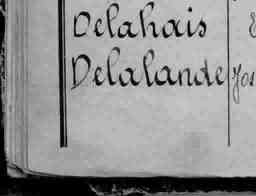 Delahais
Delalande Jos